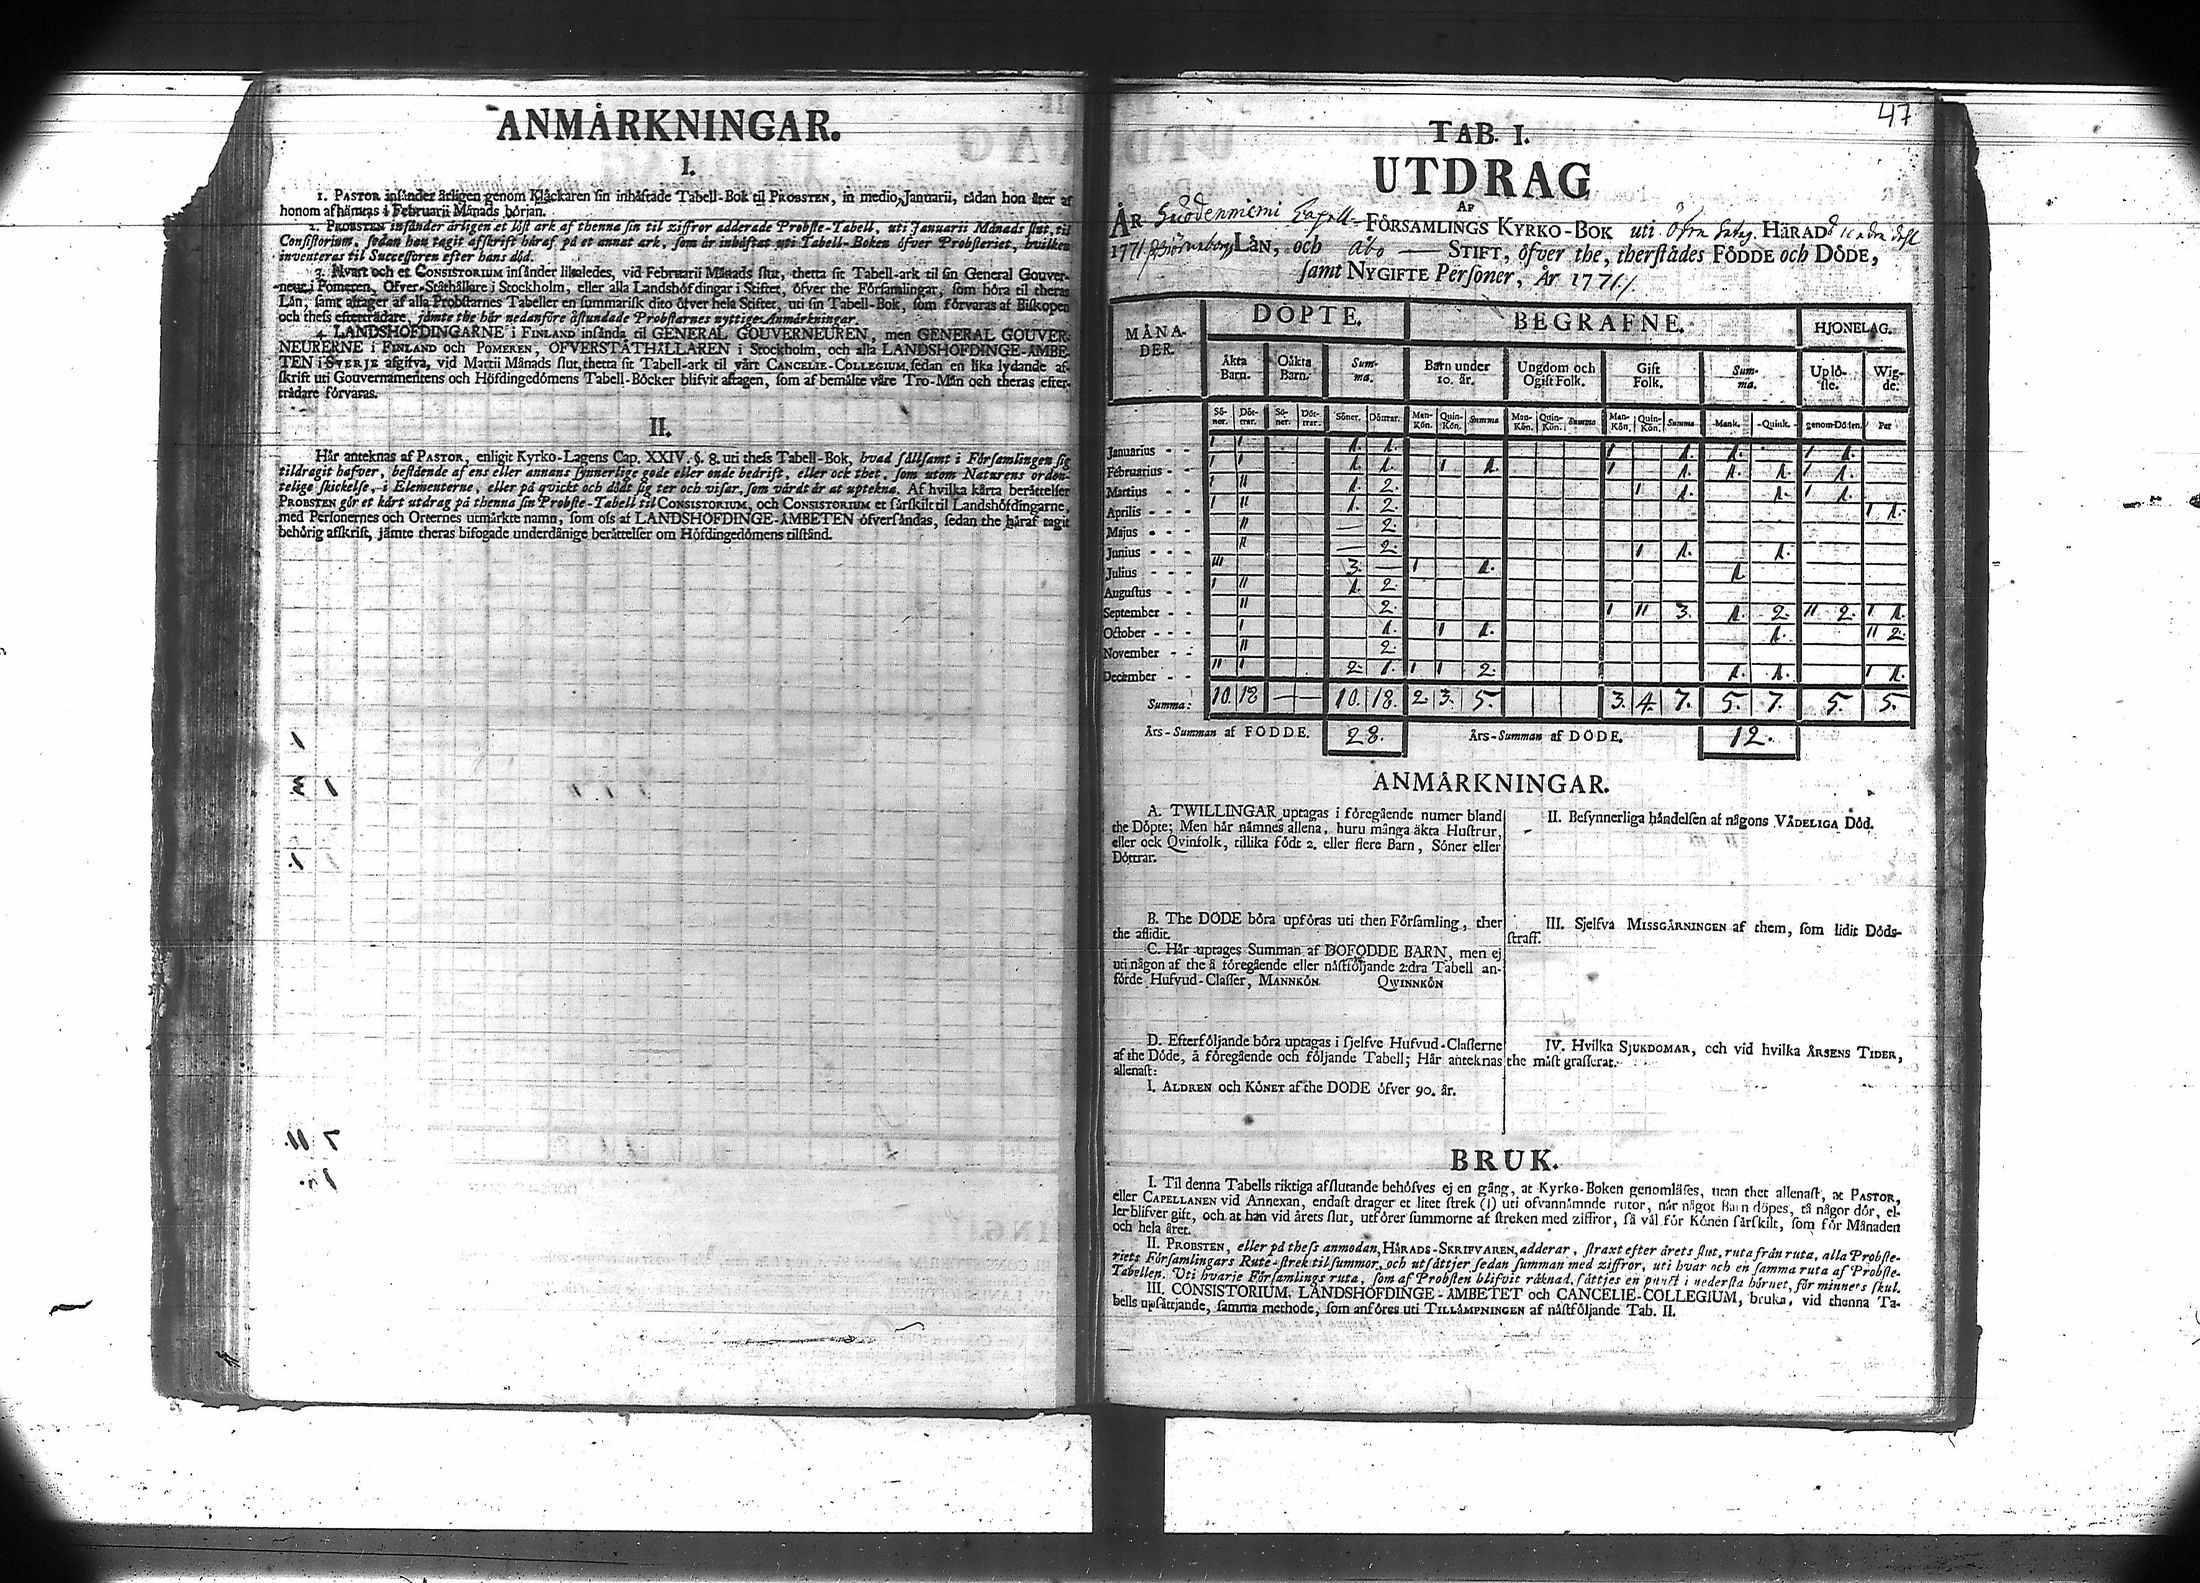 ANMÅRKNINGAR.
I.
1. PASTOR insånder årligen genom Klåckaren sin inhåftade Tabell-Bok til PROBSTEN, in medio Januarii, tådan hon åter af
honom afhåmtas i Februarii Månads början.
2. PROBSTEN insånder årligen et löst ark af thenna sin til ziffror adderade Probste-Tabell, uti Januarii Månads slut, til
Consistorium, sedan han tagit afskrift håraf på et annat ark, som år inhåftat uti Tabell-Boken öfver Probsteriet, hvilken
inventeras til Successoren efter hans död.
3. Hvart och et CONSISTORIUM insånder likaledes, vid Februarii Månads slut, thetta sit Tabell-ark til sin General Gouver-
neur i Pomeren, Öfver-Ståthållare i Stockholm, eller alla Landshöfdingar i Stiftet, öfver the Församlingar, som höra til theras
Lån, samt aftager af alla Probstarnes Tabeller en summarisk dito öfver hela Stiftet, uti sin Tabell-Bok, som förvaras af Biskopen
och thess efterträdare, jämte the hår nedanföre åstundade Probstarnes nyttige Anmårkningar.
4. LANDSHÖFDINGARNE i FINLAND insånda til GENERAL GOUVERNEUREN, men GENERAL GOUVER-
NEURERNE i FINLAND och POMEREN, ÖFVERSTÅTHÅLLAREN i Stockholm, och alla LANDSHÖFDINGE-ÅMBE-
TEN i SVERJE afgifva, vid Martii Månads slut, thetta sit Tabell-ark til vårt CANCELIE-COLLEGIUM, sedan en lika lydande af-
skrift uti Gouvernamentens och Höfdingedömens Tabell-Böcker blifvit aftagen, som af bemålte våre Tro-Mån och theras efter-
trådare förvaras.
II.
Hår anteknas af PASTOR, enligit Kyrko-Lagens Cap. XXIV. §. 8. uti thess Tabell-Bok, hvad sållsamt i Församlingen sig
tildragit hafver, bestående af ens eller annans synnerlige gode eller onde bedrift, eller ock thet, som utom Naturens orden-
telige skickelse, i Elementerne, eller på qvickt och dödt sig ter och visar, som vårdt år at uptekna. Af hvilka kårta beråttelser
PROBSTEN gör et kårt utdrag på thenna sin Probste-Tabell til CONSISTORIUM, och CONSISTORIUM et sårskilt til Landshöfdingarne,
med Personernes och Orternes utmårkte namn, som oss af LANDSHÖFDINGE-ÅMBETEN öfversåndas, sedan the håraf tagit
behörig afskrift, jåmte theras bifogade underdånige beråttelser om Höfdingedömens tilstånd.
47
TAB. I.
UTDRAG
AF
ÅR Suodenniemi Capell FÖRSAMLINGS KYRKO-BOK uti Öfra Satag. HÅRADs nedra del
1771 Björneborgs LÅN, och Åbo STIFT, öfver the, therstådes FÖDDE och DÖDE,
samt NYGIFTE Personer, År 1771.
MÅNA-DER. DÖPTE. BEGRAFNE. HJONELAG.
Åkta Barn. Oåkta Barn. Sum-ma. Barn under 10. år. Ungdom och Ogift Folk. Gift Folk. Sum-ma. Uplö-ste. Wig-de.
Sö-ner. Döt-trar. Sö-ner. Döt-trar. Söner. Döttrar. Man-Kön. Quin-Kön. Summa Man-Kön. Quin-Kön. Summa Man-Kön. Quin-Kön. Summa Mank. Quink. genom Döden. Par
Januarius - - ı ı 1. 1. ı 1. 1. ı 1.
Februarius - - ı ı 1. 1. ı 1. ı 1. 1. 1. ı 1.
Martius - - ı ıı 1. 2. ı 1. 1. ı 1.
Aprilis - - ı ıı 1. 2. ı 1.
Majus - - ıı — 2.
Junius - - ıı — 2. ı 1. 1.
Julius - - ııı 3. — ı 1. 1
Augustus - - ı ıı 1. 2.
September - - ıı 2. ı ıı 3. 1. 2. ıı 2. ı 1.
October - - ı 1. ı 1. 1. ıı 2.
November - - ıı 2.
December - - ıı ı 2. 1. ı ı 2. 1. 1. ı 1.
Summa: 10. 18 — — 10. 18. 2. 3. 5. 3. 4. 7. 5. 7. 5. 5.
Års-Summan af FÖDDE. 28. Års-Summan af DÖDE. 12.
ANMÅRKNINGAR.
A. TWILLINGAR uptagas i föregående numer bland
the Döpte; Men hår nåmnes allena, huru många åkta Hustrur,
eller ock Qvinfolk, tillika födt 2. eller flere Barn, Söner eller
Döttrar.
B. The DÖDE böra upföras uti then Församling, ther
the aflidit.
C. Hår uptages Summan af DÖFÖDDE BARN, men ej
uti någon af the å föregående eller nåstföljande 2:dra Tabell an-
förde Hufvud-Classer, MANNKÖN QWINNKÖN
D. Efterföljande böra uptagas i sjelfve Hufvud-Classerne
af the Döde, å föregående och följande Tabell; Hår anteknas
allenast:
I. ÅLDREN och KÖNET af the DÖDE öfver 90. år.
II. Besynnerliga håndelsen af någons VÅDELIGA Död.
III. Sjelfva MISSGÅRNINGEN af them, som lidit Döds-
straff.
IV. Hvilka SJUKDOMAR, och vid hvilka ÅRSENS TIDER,
the måst grasserat.
BRUK.
I. Til denna Tabells riktiga afslutande behöfves ej en gång, at Kyrko-Boken genomläses, utan thet allenast, at PASTOR,
eller CAPELLANEN vid Annexan, endast drager et litet strek (ı) uti ofvannåmnde rutor, når något Barn döpes, tå någor dör, el-
ler blifver gift, och at han vid årets slut, utförer summorne af streken med ziffror, så vål för Könen sårskilt, som för Månaden
och hela året.
II. PROBSTEN, eller på thess anmodan, HÅRADS-SKRIFVAREN, adderar, straxt efter årets slut, ruta från ruta, alla Probste-
riets Församlingars Rute-strek til summor, och utsåttjer sedan summan med ziffror, uti hvar och en samma ruta af Probste-
Tabellen. Uti hvarje Församlings ruta, som af Probsten blifvit råknad, såttjes en punct i nedersta hörnet, för minnets skul.
III. CONSISTORIUM, LANDSHÖFDINGE-ÅMBETET och CANCELIE-COLLEGIUM, bruka, vid thenna Ta-
bells upsåttjande, samma methode, som anföres uti TILLÅMPNINGEN af nåstföljande Tab. II.